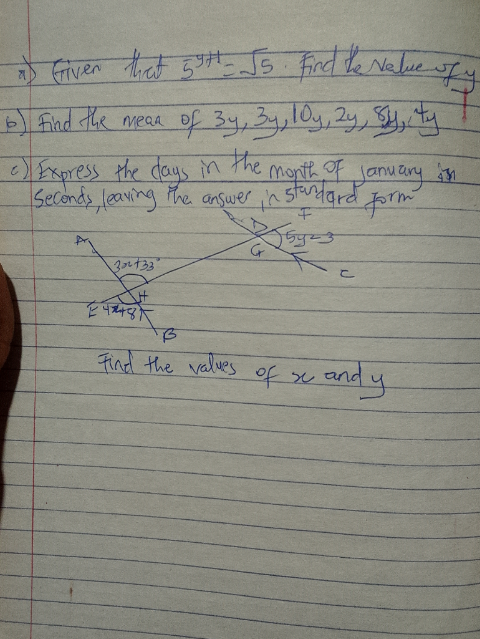 a) Given that 5^y+1 = √5. Find the value of y
b) Find the mean of 3y, 3y, 10y, 2y, 8y, 4y
c) Express the days in the month of January in
Seconds, leaving the answer in standard form
D F
5y-3
G
C
A
3x+33°
H
E 4x+81
B
Find the values of x and y